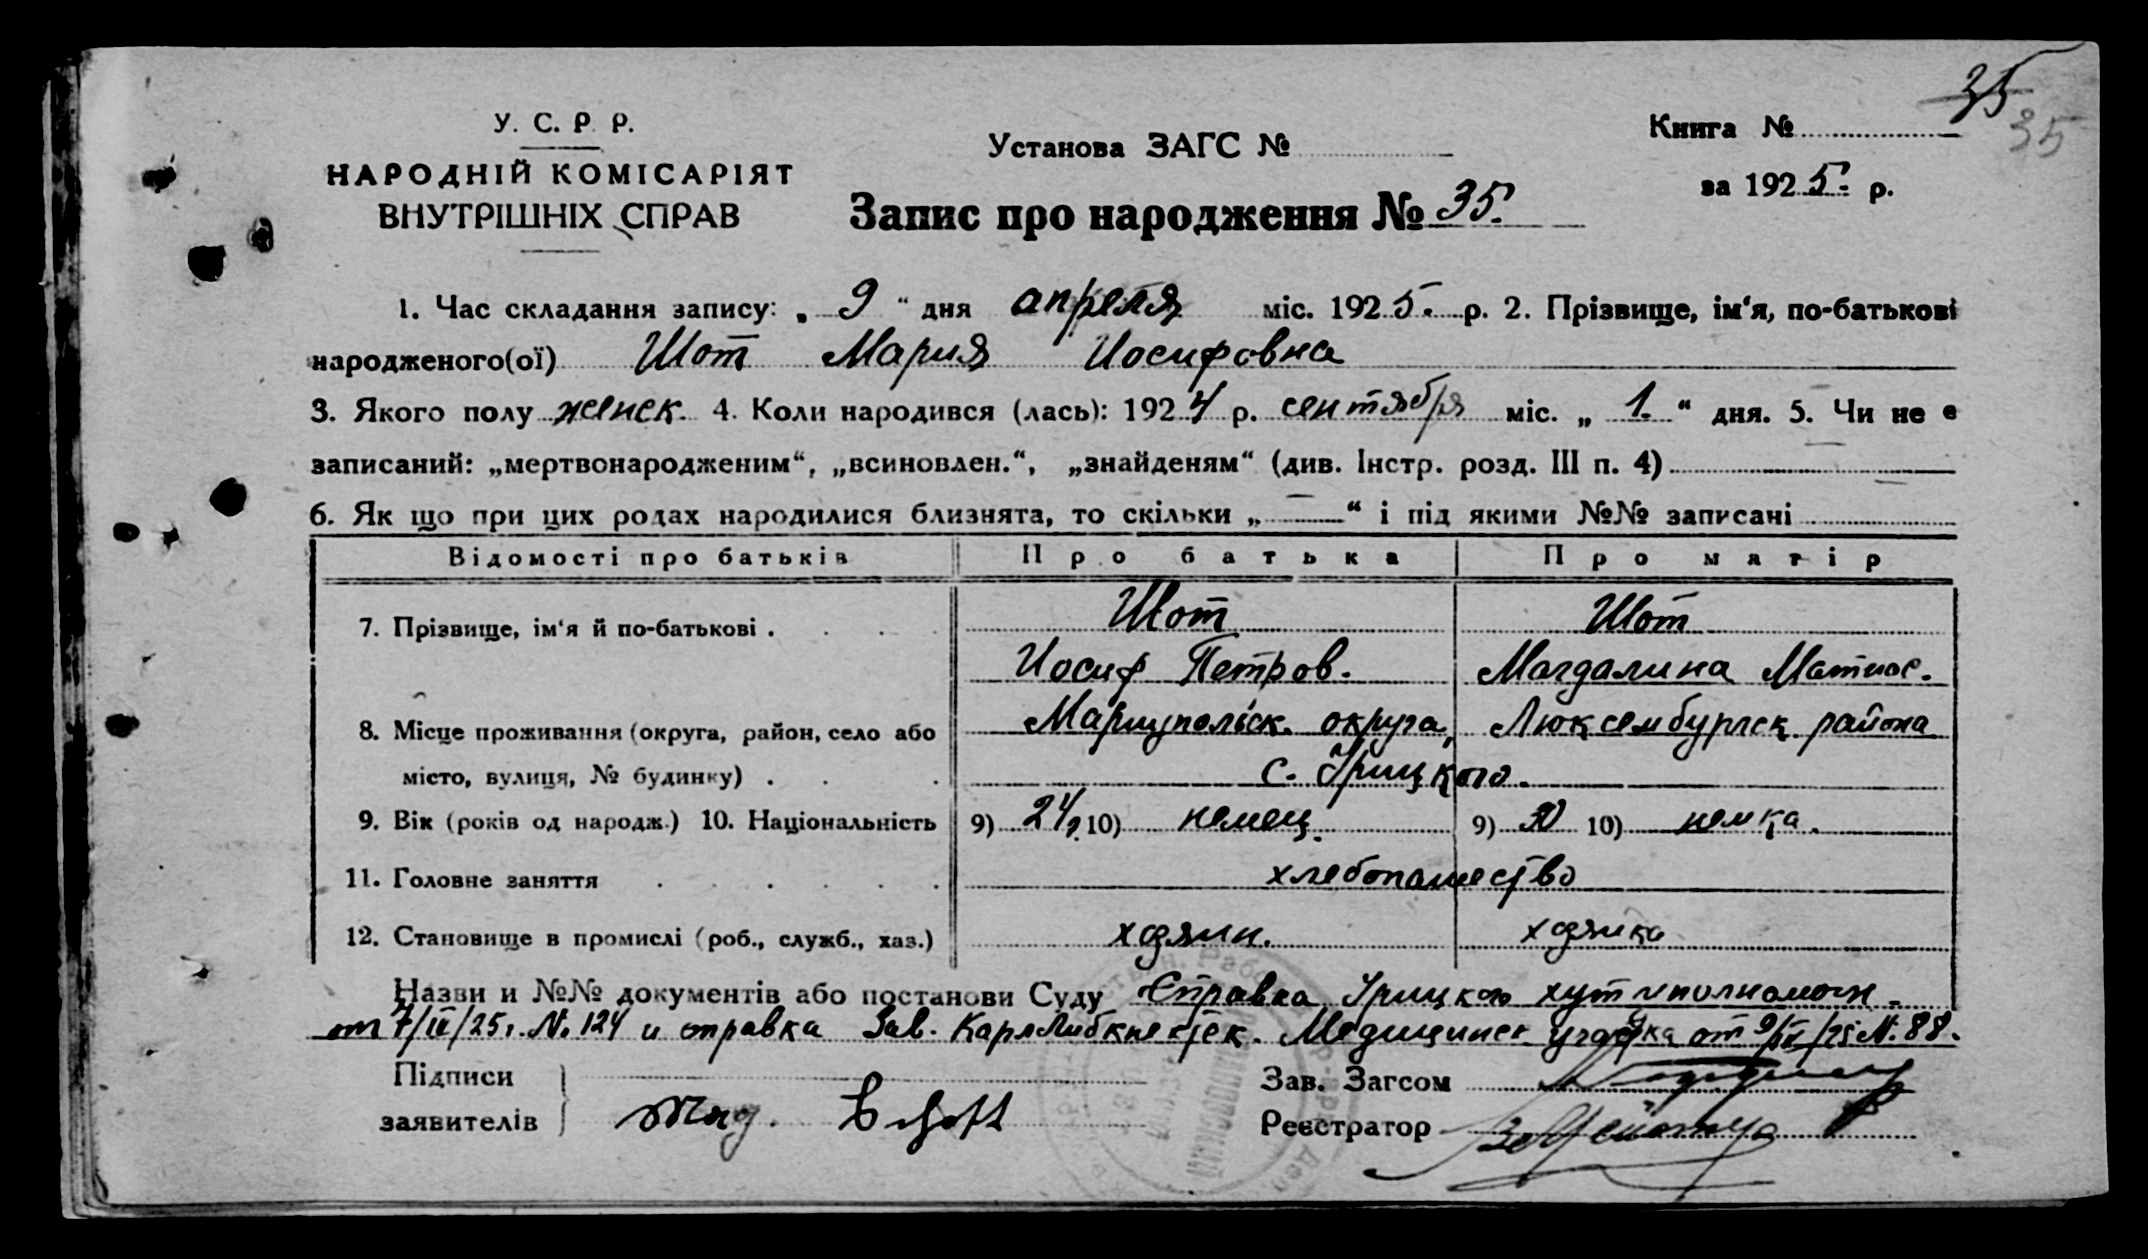 35
35
У. С. Р. Р.
НАРОДНІЙ КОМІСАРІЯТ
ВНУТРІШНІХ СПРАВ
Установа ЗАГС №
Книга №
за 1925. р.
Запис про народження № 35.
1. Час складання запису: „ 9 “ дня апреля міс. 1925. р. 2. Прізвище, ім‘я, по-батькові
народженого(ої) Шот Мария Иосифовна
3. Якого полу женск. 4. Коли народився (лась): 1924 р. сентября міс. „ 1. “ дня. 5. Чи не є
записаний: „мертвонародженим“, „всиновлен.“, „знайденям“ (див. Інстр. розд. III п. 4)
6. Як що при цих родах народилися близнята, то скільки „ — “ і під якими №№ записані
Відомості про батьків Про батька Про матір
7. Прізвище, ім‘я й по-батькові . Шот Шот
Иосиф Петров. Магдалина Матиас.
8. Місце проживання (округа, район, село або Мариупольск. округа, Люксембургск. района
місто, вулиця, № будинку) . с. Урицкого.
9. Вік (років од народж.) 10. Національність 9) 24 10) немец. 9) 20 10) немка.
11. Головне заняття хлебопашество
12. Становище в промислі (роб., служб., хаз.) хозяин. хозяйка
Назви и №№ документів або постанови Суду Справка Урицкого хут уполномоч.
от 7/IV/25г. № 124 и справка Зав. КарлЛибкнехтск. Медицинск участка от 9/IV/25 № 88.
Підписи
заявителів
Зав. Загсом
Реєстратор